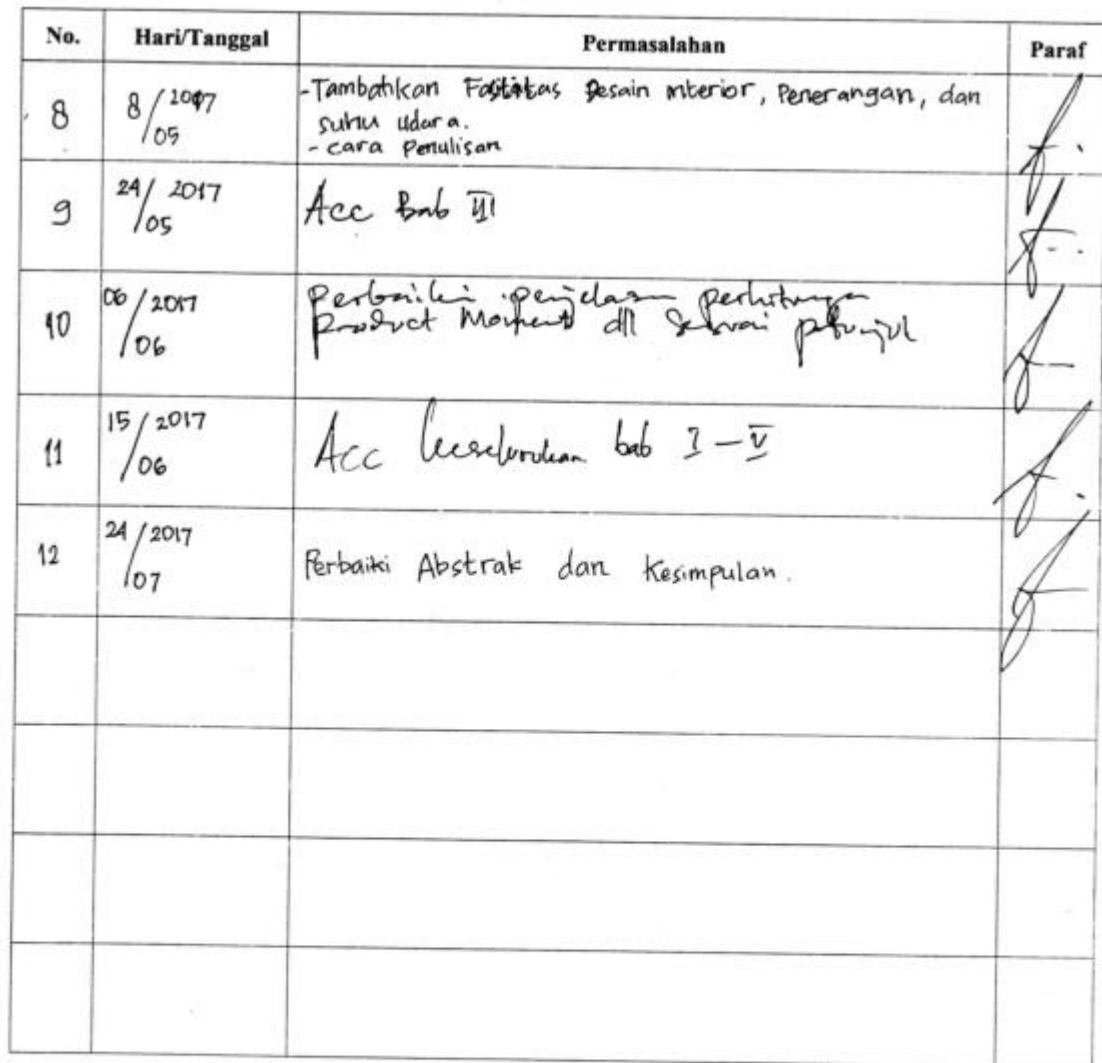 No. Hari/Tanggal Permasalahan Paraf
8 8/2017 -Tambahkan Fasilitas Desain interior, Penerangan, dan
/05 suhu udara.
- cara Penulisan
9 24/2017 Acc Bab III
/05
10 06/2017 Perbaiki penjelasan perhitungan
/06 product Moment dll Sesuai petunjuk
11 15/2017 Acc keseluruhan bab I - V
/06
12 24/2017 Perbaiki Abstrak dan Kesimpulan.
/07